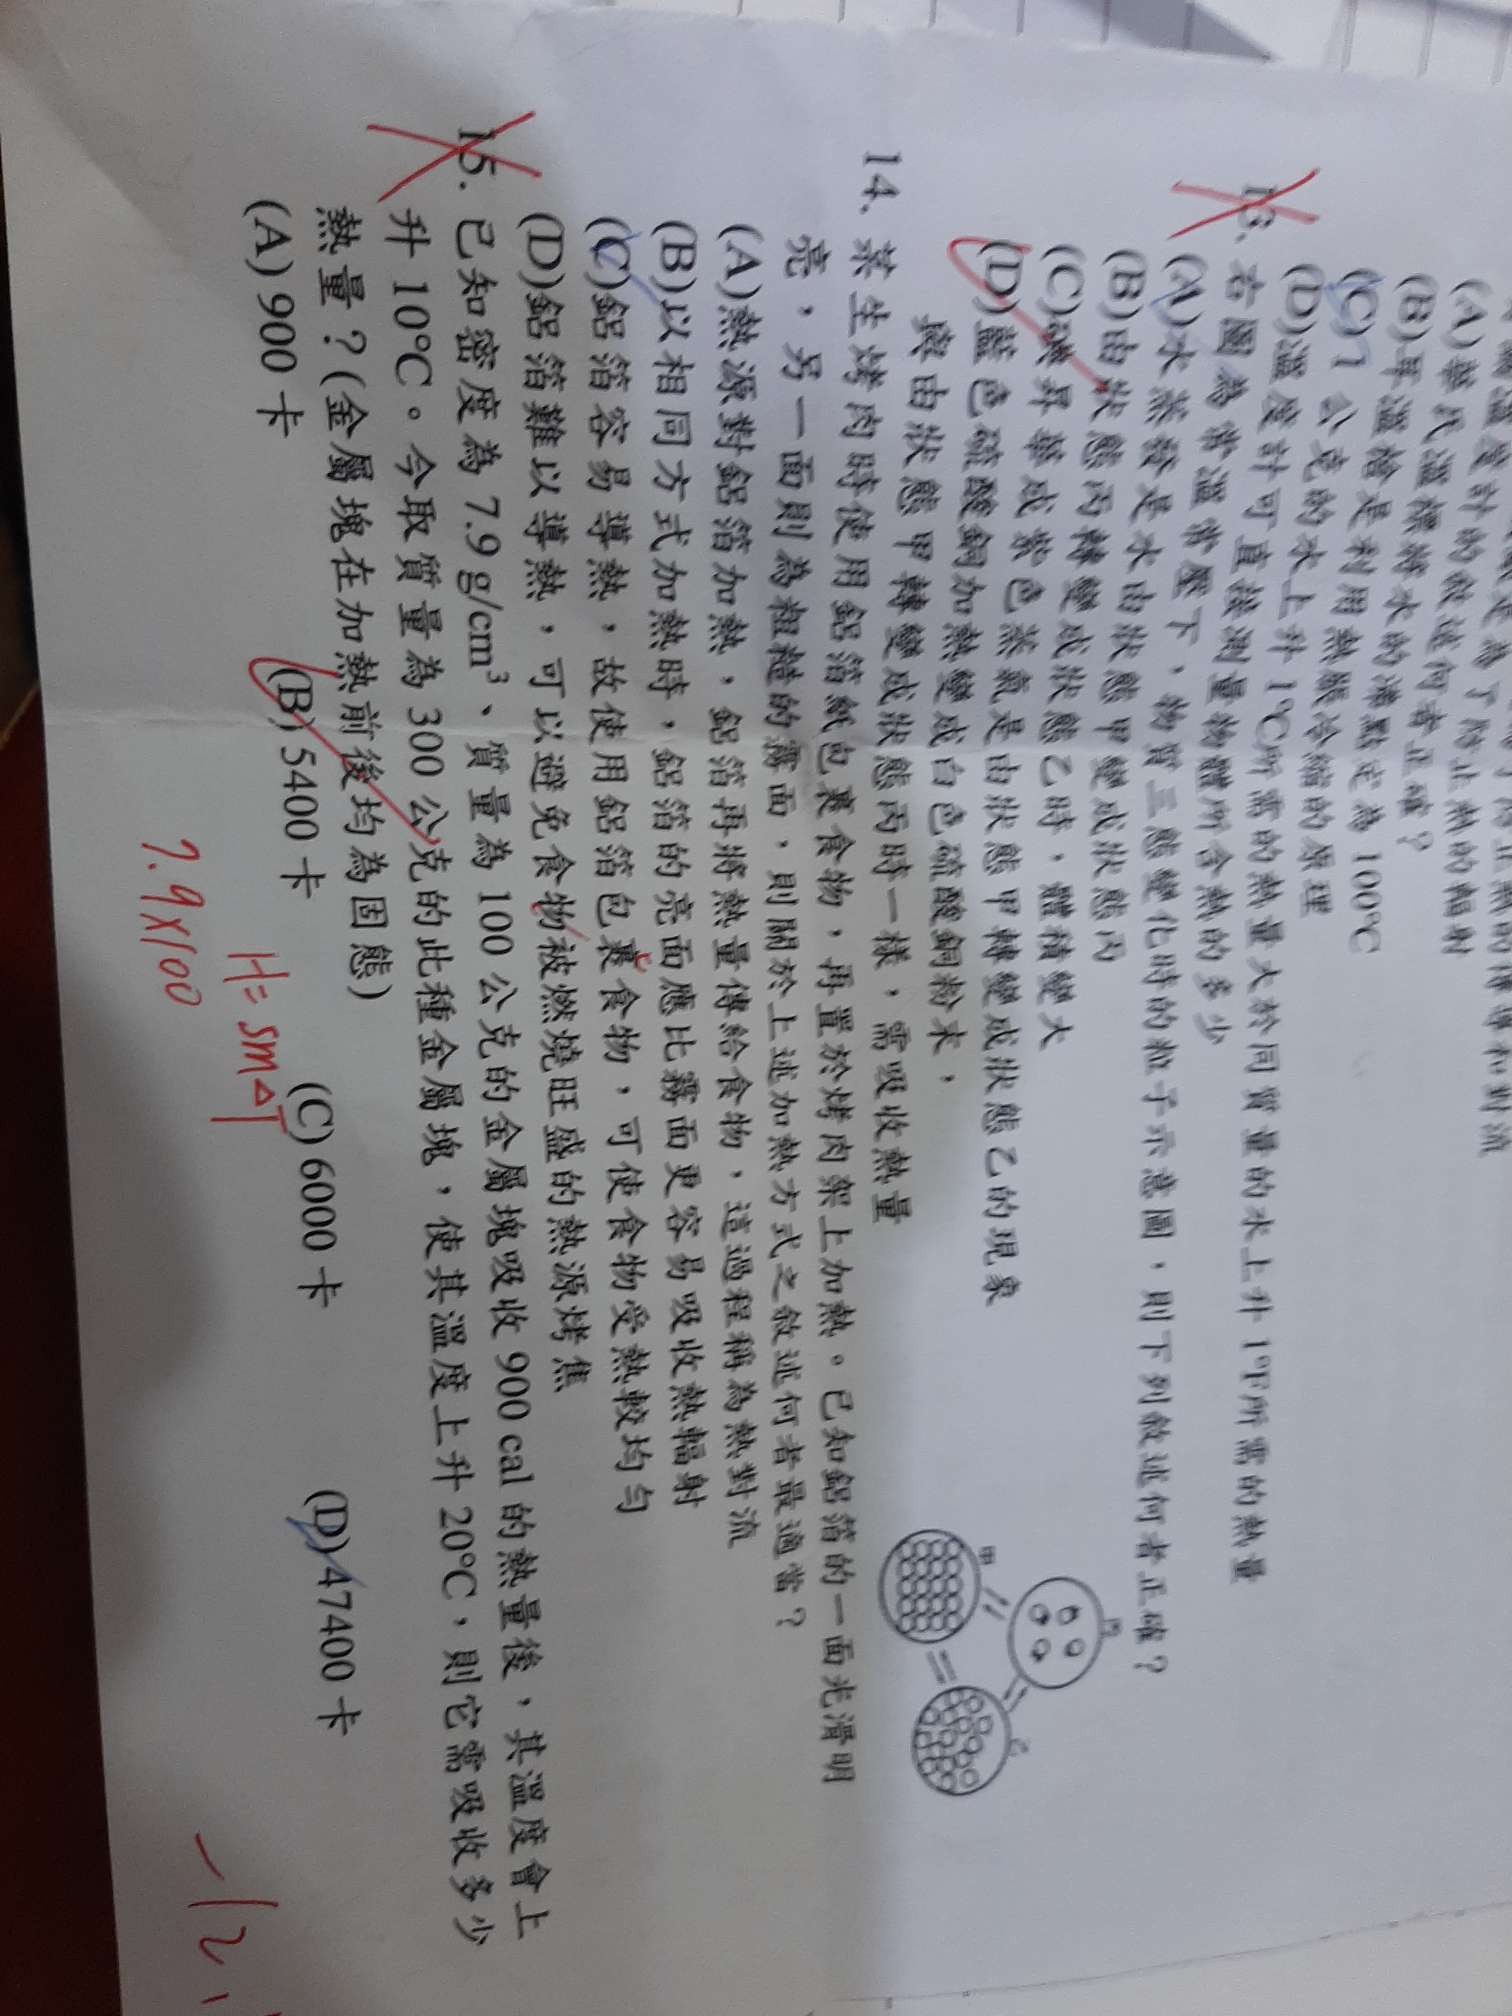 (A)華氏溫標將水的沸點定為 100℃
(B)耳溫槍是利用熱脹冷縮的原理
(C)1 公克的水上升 1℃所需的熱量大於同質量的水上升 1℉所需的熱量
(D)溫度計可直接測量物體所含熱的多少
13. 右圖為常溫常壓下，物質三態變化時的粒子示意圖，則下列敘述何者正確？
(A)水蒸發是水由狀態甲變成狀態丙
(B)由狀態丙轉變成狀態乙時，體積變大
(C)碘昇華成紫色蒸氣是由狀態甲轉變成狀態乙的現象
(D)藍色硫酸銅加熱變成白色硫酸銅粉末，
與由狀態甲轉變成狀態丙時一樣，需吸收熱量
甲
丙
乙
14. 某生烤肉時使用鋁箔紙包裹食物，再置於烤肉架上加熱。已知鋁箔的一面光滑明
亮，另一面則為粗糙的霧面，則關於上述加熱方式之敘述何者最適當？
(A)熱源對鋁箔加熱，鋁箔再將熱量傳給食物，這過程稱為熱對流
(B)以相同方式加熱時，鋁箔的亮面應比霧面更容易吸收熱輻射
(C)鋁箔容易導熱，故使用鋁箔包裹食物，可使食物受熱較均勻
(D)鋁箔難以導熱，可以避免食物被燃燒旺盛的熱源烤焦
15. 已知密度為 7.9 g/cm³、質量為 100 公克的金屬塊吸收 900 cal 的熱量後，其溫度會上
升 10℃。今取質量為 300 公克的此種金屬塊，使其溫度上升 20℃，則它需吸收多少
熱量？(金屬塊在加熱前後均為固態)
(A) 900 卡 (B) 5400 卡 (C) 6000 卡 (D) 47400 卡
H=SM△T
7.9×100
-12.